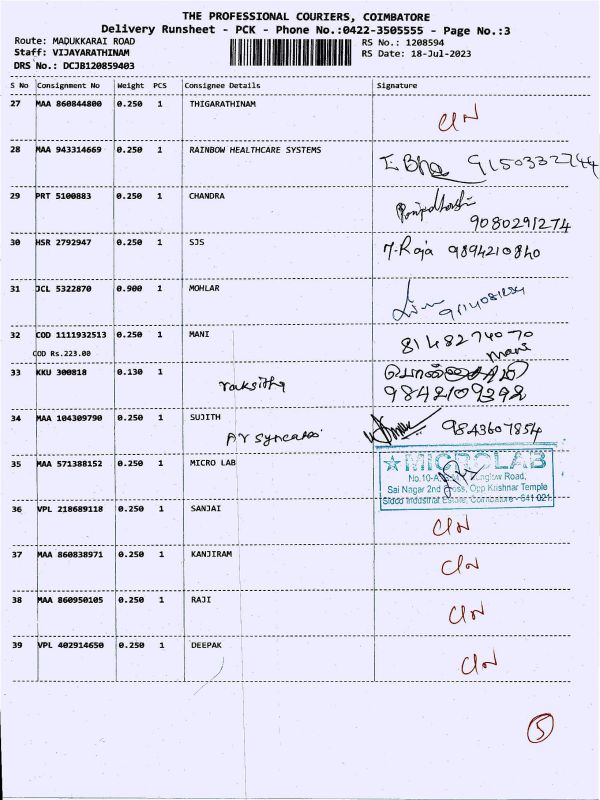 THE PROFESSIONAL COURIERS, COIMBATORE
Delivery Runsheet - PCK - Phone No.:0422-3505555 - Page No.:3
Route: MADUKKARAI ROAD RS No.: 1208594
Staff: VIJAYARATHINAM RS Date: 18-Jul-2023
DRS No.: DCJB120859403
S No Consignment No Weight PCS Consignee Details Signature
27 MAA 860844800 0.250 1 THIGARATHINAM
28 MAA 943314669 0.250 1 RAINBOW HEALTHCARE SYSTEMS 9150332744
29 PRT 5100883 0.250 1 CHANDRA
9080291274
30 HSR 2792947 0.250 1 SJS M.Roja 9894210840
31 JCL 5322870 0.900 1 MOHLAR
32 COD 1111932513 0.250 1 MANI 8148274070
COD Rs.223.00 Mani
33 KKU 300818 0.130 1 raksitha
9842109392
34 MAA 104309790 0.250 1 SUJITH 9843607854
35 MAA 571388152 0.250 1 MICRO LAB MICROLAB
Sai Nagar 2nd Cross, Opp Krishnar Temple
Sidco Industrial Estate, Coimbatore - 641 021.
36 VPL 218689118 0.250 1 SANJAI
37 MAA 860838971 0.250 1 KANJIRAM
38 MAA 860950105 0.250 1 RAJI
39 VPL 402914650 0.250 1 DEEPAK
5